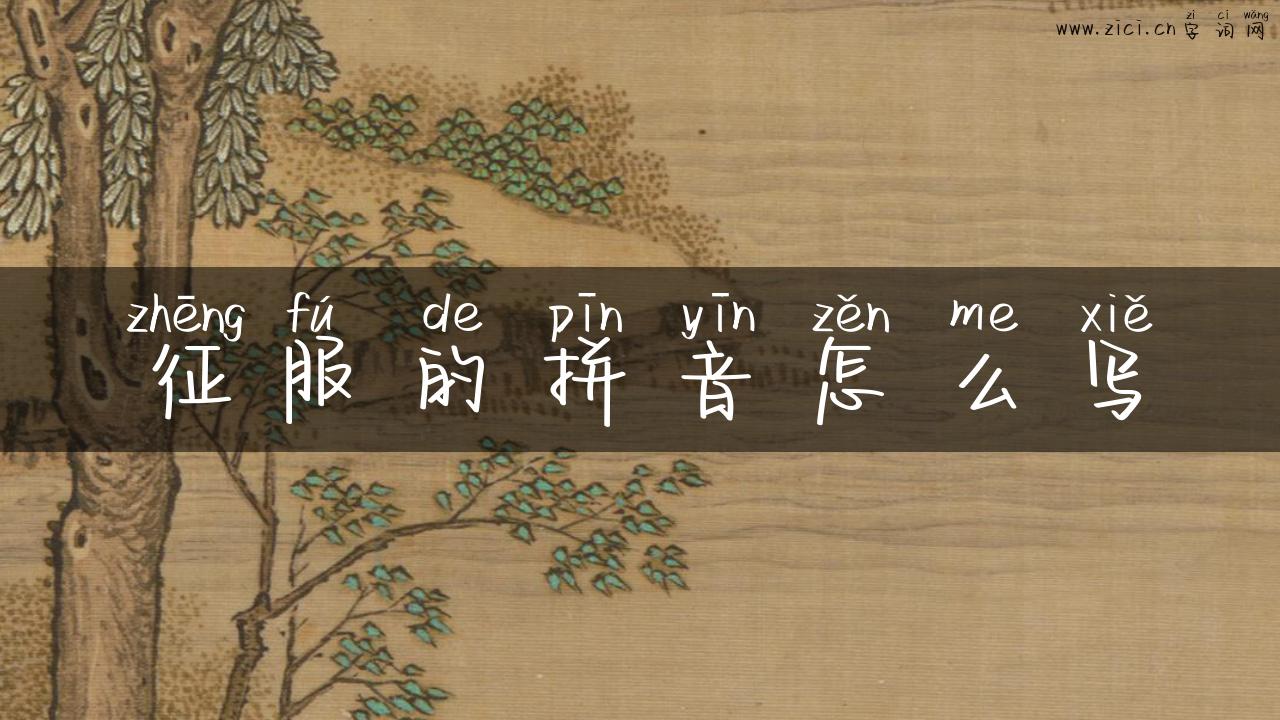 zì cí wǎng
www.zici.cn 字词网
zhēng fú de pīn yīn zěn me xiě
征服的拼音怎么写